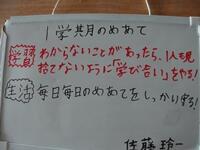 1学期のめあて
学習 わからないことがあったら、1人も見
捨てないように「学び合い」をやる!
生活 毎日毎日のめあてをしっかり守る!
佐藤